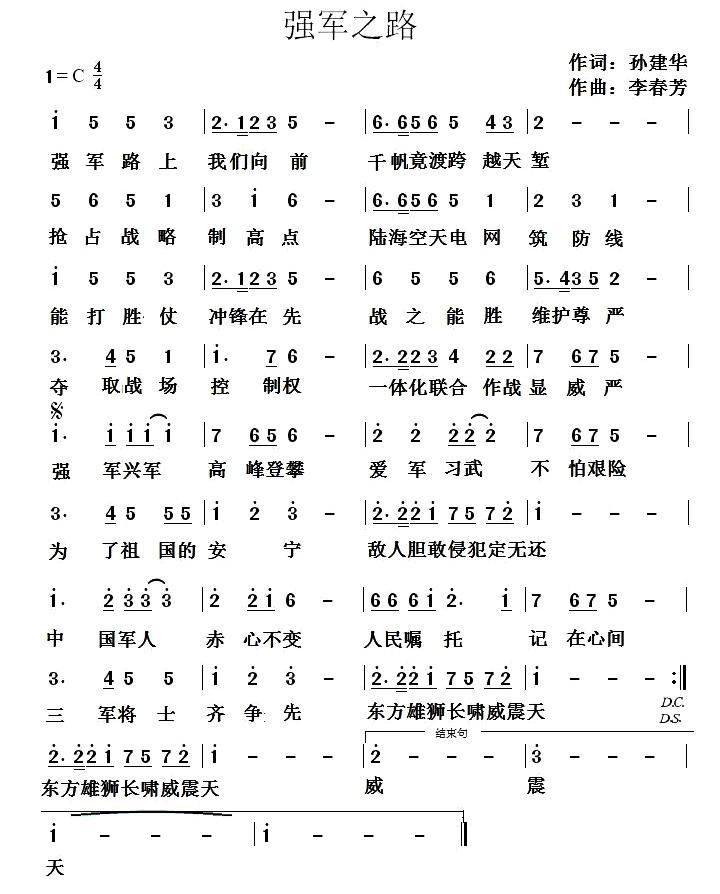 强军之路
1=C 4/4
作词：孙建华
作曲：李春芳
i 5 5 3 | 2· 1 2 3 5 - | 6· 6 5 6 5 4 3 | 2 - - - |
强军路上 我们向前 千帆竟渡跨越天堑
5 6 5 1 | 3 i 6 - | 6· 6 5 6 5 1 | 2 3 1 - |
抢占战略 制高点 陆海空天电网 筑防线
i 5 5 3 | 2· 1 2 3 5 - | 6 5 5 6 | 5· 4 3 5 2 - |
能打胜仗 冲锋在先 战之能胜 维护尊严
3· 4 5 1 | i· 7 6 - | 2· 2 2 3 4 2 2 | 7 6 7 5 - |
夺取战场 控制权 一体化联合作战显威严
i· i i i i | 7 6 5 6 - | 2 2 2 2 2 | 7 6 7 5 - |
强军兴军 高峰登攀 爱军习武 不怕艰险
3· 4 5 5 5 | i 2 3 - | 2· 2 2 i 7 5 7 2 | i - - - |
为了祖国的安宁 敌人胆敢侵犯定无还
i· 2 3 3 3 | 2 2 i 6 - | 6 6 6 i 2· i | 7 6 7 5 - - |
中国军人 赤心不变 人民嘱托 记在心间
3· 4 5 5 | i 2 3 - | 2· 2 2 i 7 5 7 2 | i - - :||
三军将士 齐争先 东方雄狮长啸威震天
D.C.
D.S.
结束句
2· 2 2 i 7 5 7 2 | i - - - | 2 - - - | 3 - - - |
东方雄狮长啸威震天 威 震
i - - - | i - - - ||
天